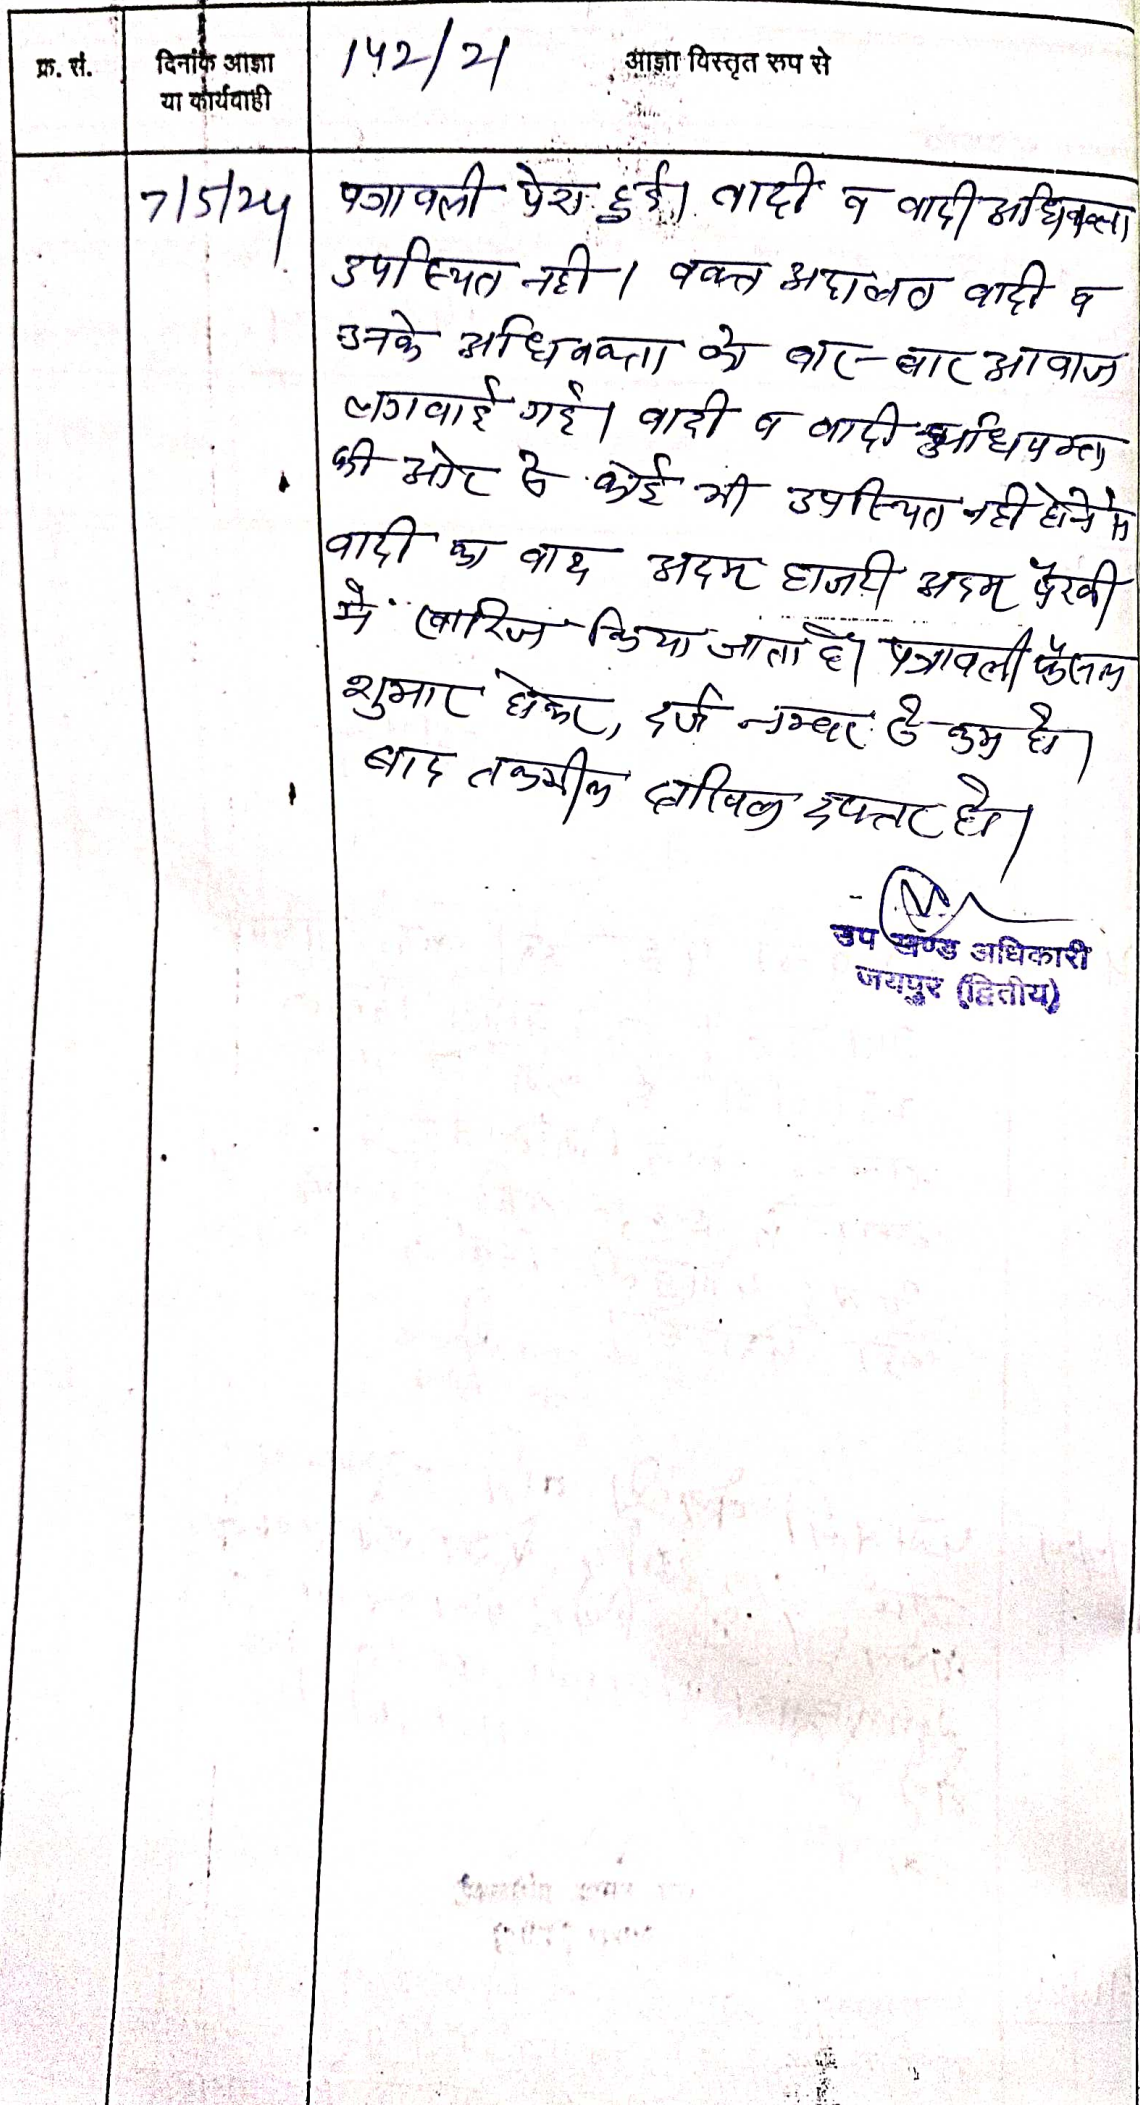 क्र. सं.
दिनांक आज्ञा
या कार्यवाही
142/21
आज्ञा विस्तृत रूप से
7/5/24
पत्रावली पेश हुई। वादी व वादी अधिवक्ता
उपस्थित नही। वक्त अदालत वादी व
उनके अधिवक्ता को बार-बार आवाज
लगवाई गई। वादी व वादी अधिवक्ता
की ओर से कोई भी उपस्थित नही होने से
वादी का वाद अदम हाजरी अदम पैरवी
मे खारिज किया जाता है। पत्रावली फैसल
शुमार होकर, दर्ज नम्बर से कम हो।
बाद तकमील दाखिल दफ्तर हो।
उप खण्ड अधिकारी
जयपुर (द्वितीय)